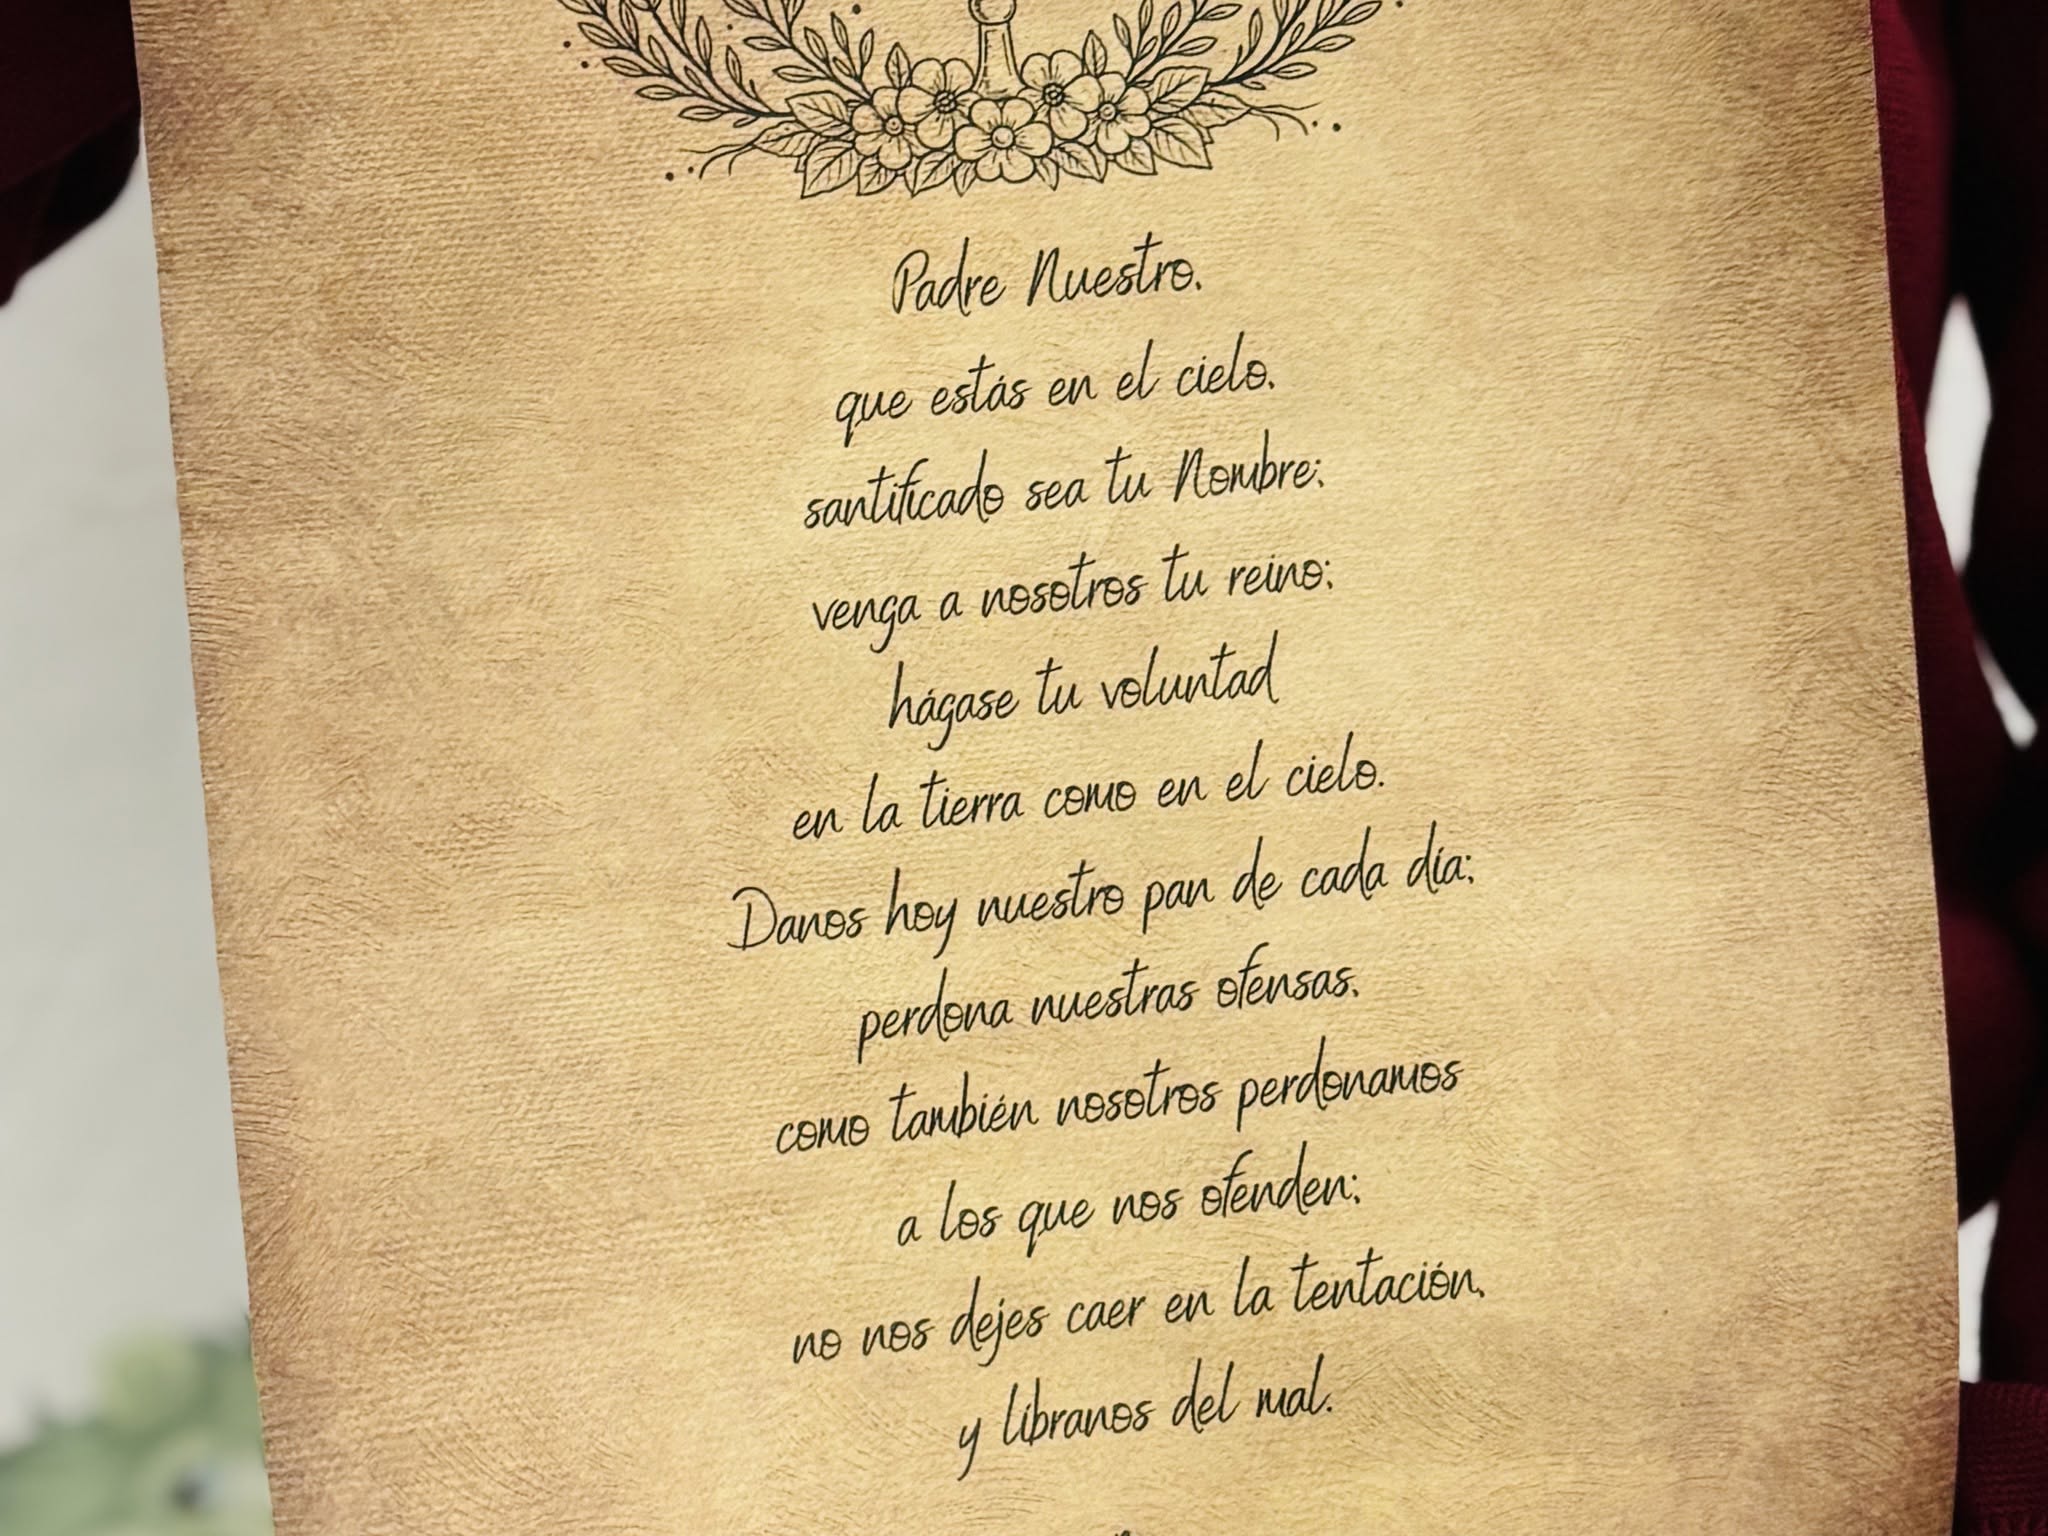 Padre Nuestro,
que estás en el cielo,
santificado sea tu Nombre;
venga a nosotros tu reino;
hágase tu voluntad
en la tierra como en el cielo.
Danos hoy nuestro pan de cada día;
perdona nuestras ofensas,
como también nosotros perdonamos
a los que nos ofenden;
no nos dejes caer en la tentación,
y líbranos del mal.